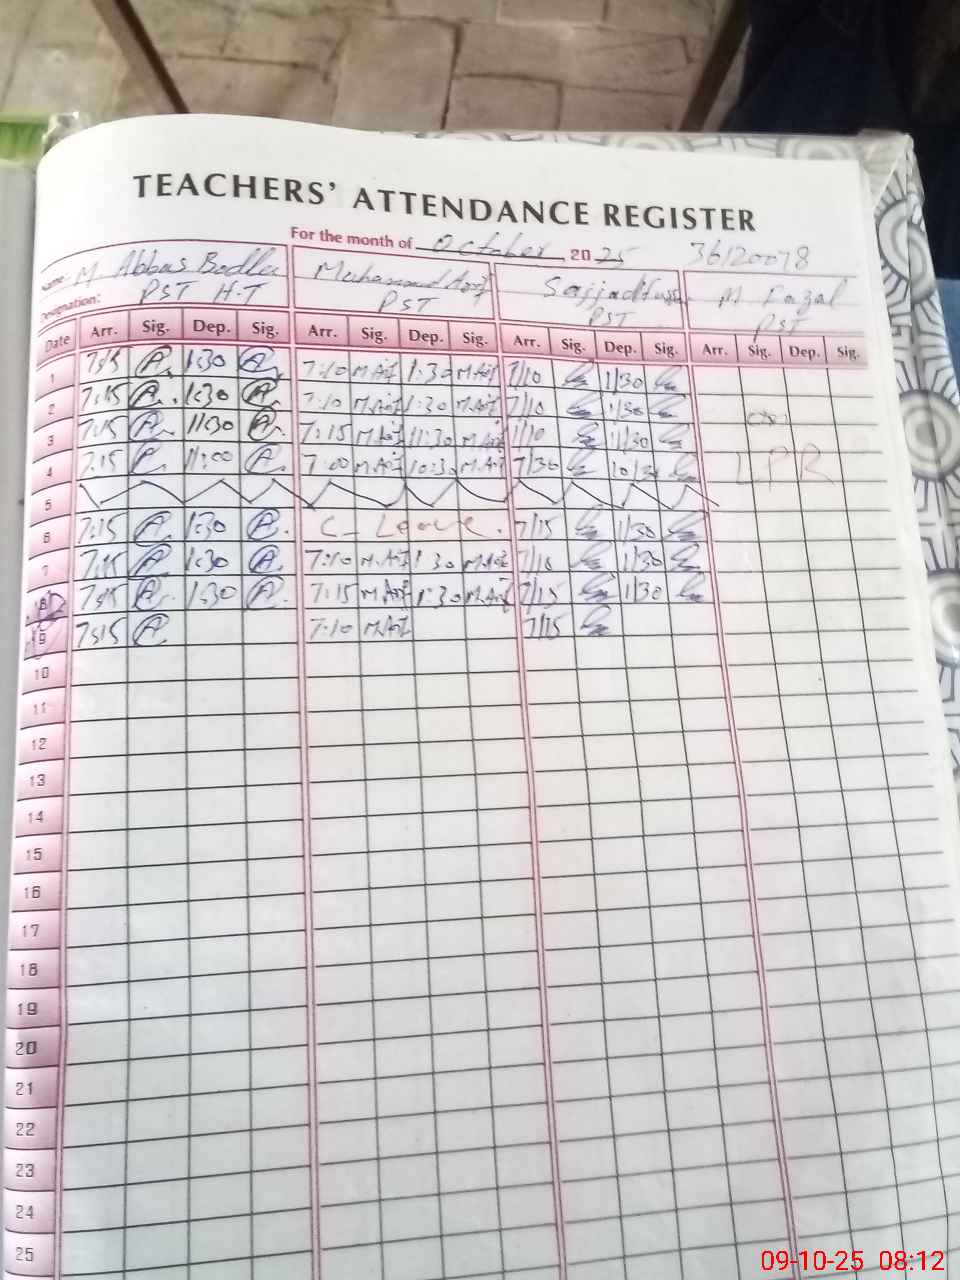 TEACHERS' ATTENDANCE REGISTER
For the month of October 2025 36120078
Name: M. Abbas Bodla Muhammad Arif Sajjad M Fazal
Designation: PST H.T PST PST PST
Date Arr. Sig. Dep. Sig. Arr. Sig. Dep. Sig. Arr. Sig. Dep. Sig. Arr. Sig. Dep. Sig.
1 7:15 1:30 7:10 M.Arif 1:30 M.Arif 7/10 1/30
2 7:15 1:30 7:10 M.Arif 1:30 M.Arif 7/10 1/30 on
3 7:15 11:30 7:15 M.Arif 11:30 M.Arif 7/10 11/30
4 7:15 11:00 7:00 M.Arif 10:30 M.Arif 7/30 10/30 LPR
5
6 7:15 1:30 C_ Leave. 7/15 1/30
7 7:15 1:30 7:10 M.Arif 1:30 M.Arif 7/10 1/30
8 7:15 1:30 7:15 M.Arif 1:30 M.Arif 7/15 1/30
9 7:15 7:10 M.Arif 7/15
10
11
12
13
14
15
16
17
18
19
20
21
22
23
24
25
09-10-25 08:12